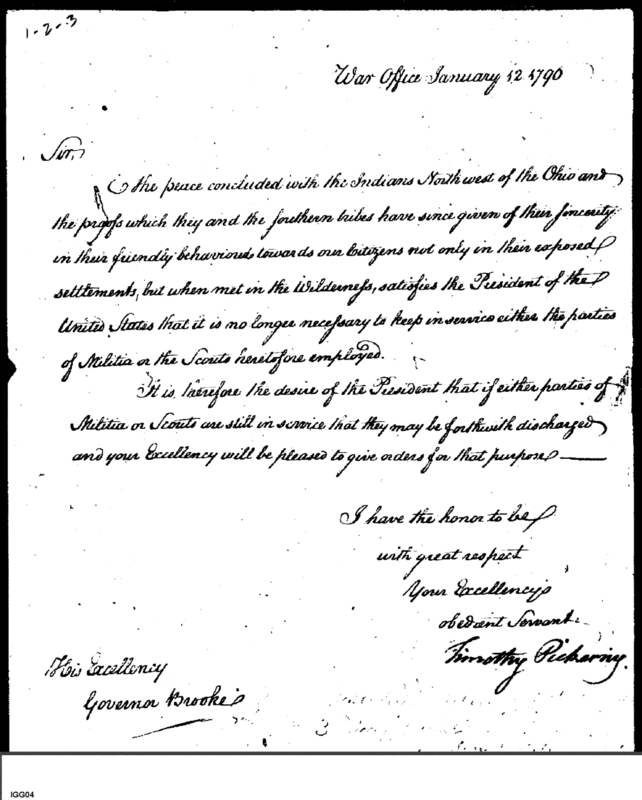 1-2-3
War Office January 12 1790
Sir,
The peace concluded with the Indians Northwest of the Ohio and
the proofs which they and the southern tribes have since given of their sincerity
in their friendly behaviour towards our Citizens not only in their exposed
settlements, but when met in the Wilderness, satisfies the President of the
United States that it is no longer necessary to keep in service either the parties
of Militia or the Scouts heretofore employed.
It is therefore the desire of the President that if either parties of
Militia or Scouts are still in service that they may be forthwith discharged
and your Excellency will be pleased to give orders for that purpose
I have the honor to be
with great respect
Your Excellency's
obedient Servant.
Timothy Pickering.
His Excellency
Governor Brooke
IGG04